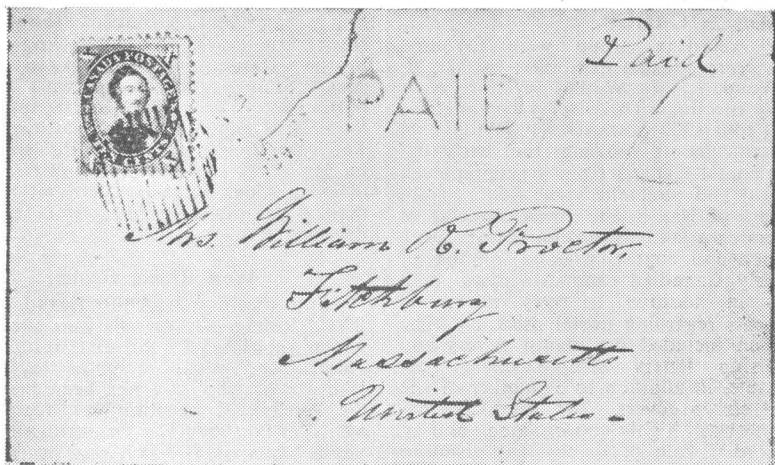 Paid
CANADA POSTAGE
TEN CENTS
PAID
Mrs. William R. Proctor,
Fitchburg
Massachusetts
United States.